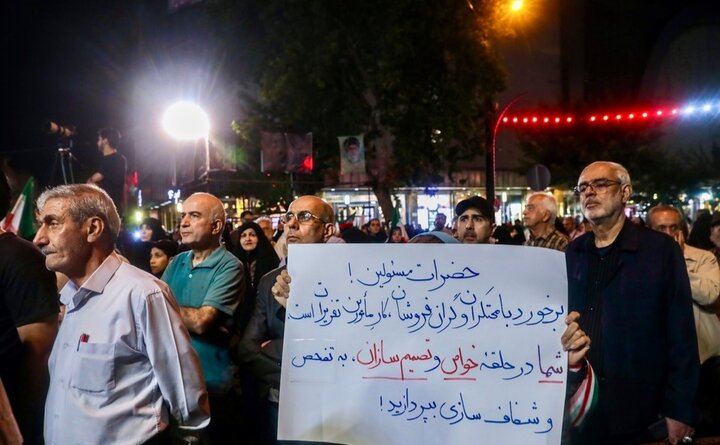 حضرات مسئولین !
برخورد با محتکران و گران فروشان، کار مأمورین تعزیرات است
شما در حلقهٔ خواص و تصمیم سازان، به تفحص
و شفاف سازی بپردازید !